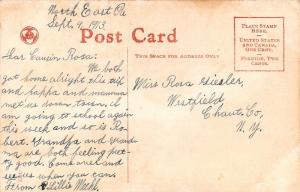 North East Pa
Sept. 4, 1913.
Post Card
THE SPACE FOR ADDRESS ONLY
PLACE STAMP
HERE.
UNITED STATES
AND CANADA,
ONE CENT.
FOREIGN, TWO
CENTS.
Dear Cousin Rosa: We both
got home alright. Dis all
and happa and mamma
met us down town. I
am going to school again
this week and so is Ro-
bert. Grandpa and Grand
ma are both feeling pret-
ty good. Come and
see us when you can
From Lillie
Miss Rosa
Westfield,
Chaut. Co,
N. Y.